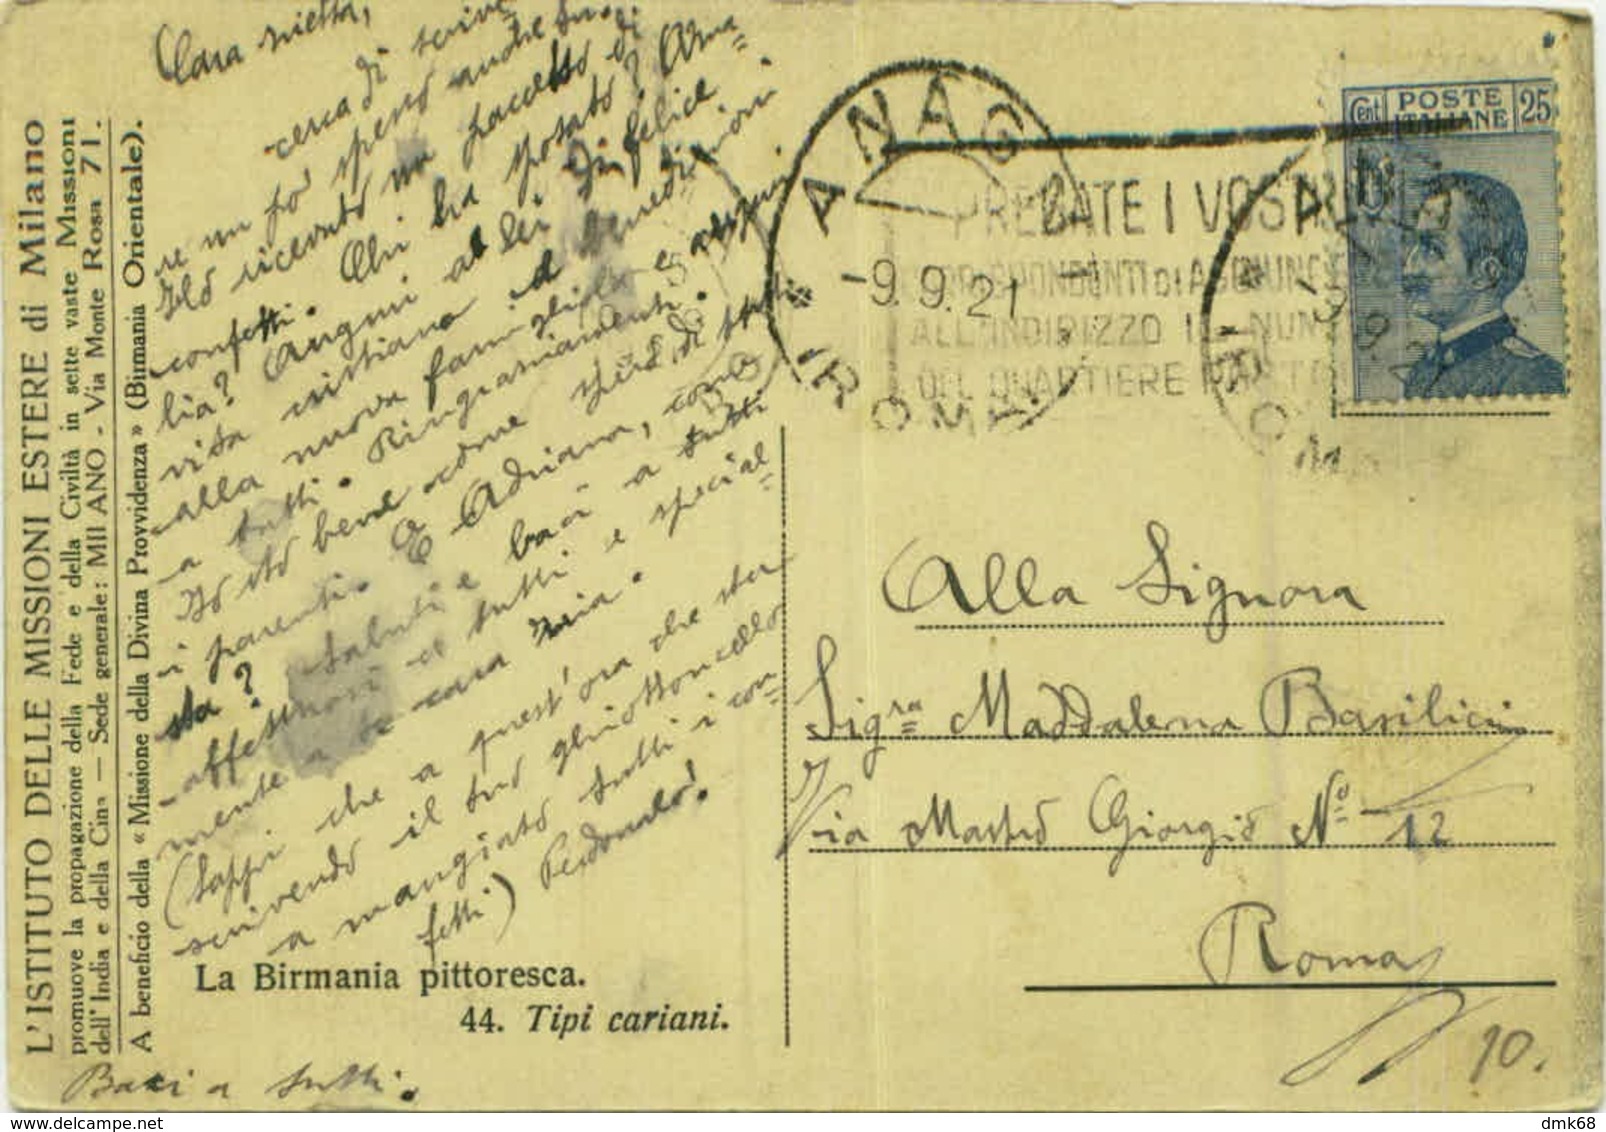 L'ISTITUTO DELLE MISSIONI ESTERE di Milano
promuove la propagazione della Fede e della Civiltà in sette vaste Missioni
dell'India e della Cina — Sede generale: MILANO - Via Monte Rosa 71.
A beneficio della « Missione della Divina Provvidenza » (Birmania Orientale).
Cara nietta,
cerca di scrive
re un po' spesso anche tu.
Ho ricevuto un pacchetto di
confetti. Chi ha sposato? Ama=
lia? Auguri al lei di felice
vita cristiana e benedizioni
alla nuova famigliola e auguri
a tutti. Ringraziamenti.
Io sto bene come spero di tutti
i parenti. E Adriana, come
sta? Saluti e baci a tutti
affettuosi a tutti e special=
mente a te cara mia.
(Sappi che a quest'ora che sta
scrivendo il tuo ghiottoncello
a mangiato tutti i con=
fetti) Perdonalo!
La Birmania pittoresca.
44. Tipi cariani.
Baci a tutti.
ANAG
ROMA
-9.9.21
PREGATE I VOST
CORRISPONDENTI DI AGGIUNGE
ALL'INDIRIZZO IL NUM
DEL QUARTIERE POST
Cent POSTE ITALIANE 25
Alla Signora
Sigra Maddalena Basilici
Via Mastro Giorgio No 12
Roma
10.
dmk68